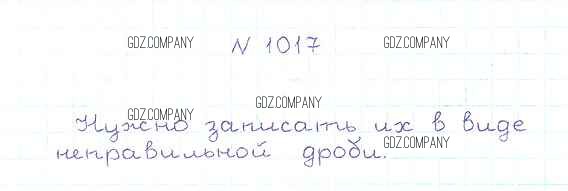 GDZ.COMPANY № 1017 GDZ.COMPANY
GDZ.COMPANY GDZ.COMPANY
Нужно записать их в виде
неправильной дроби.
GDZ.COMPANY